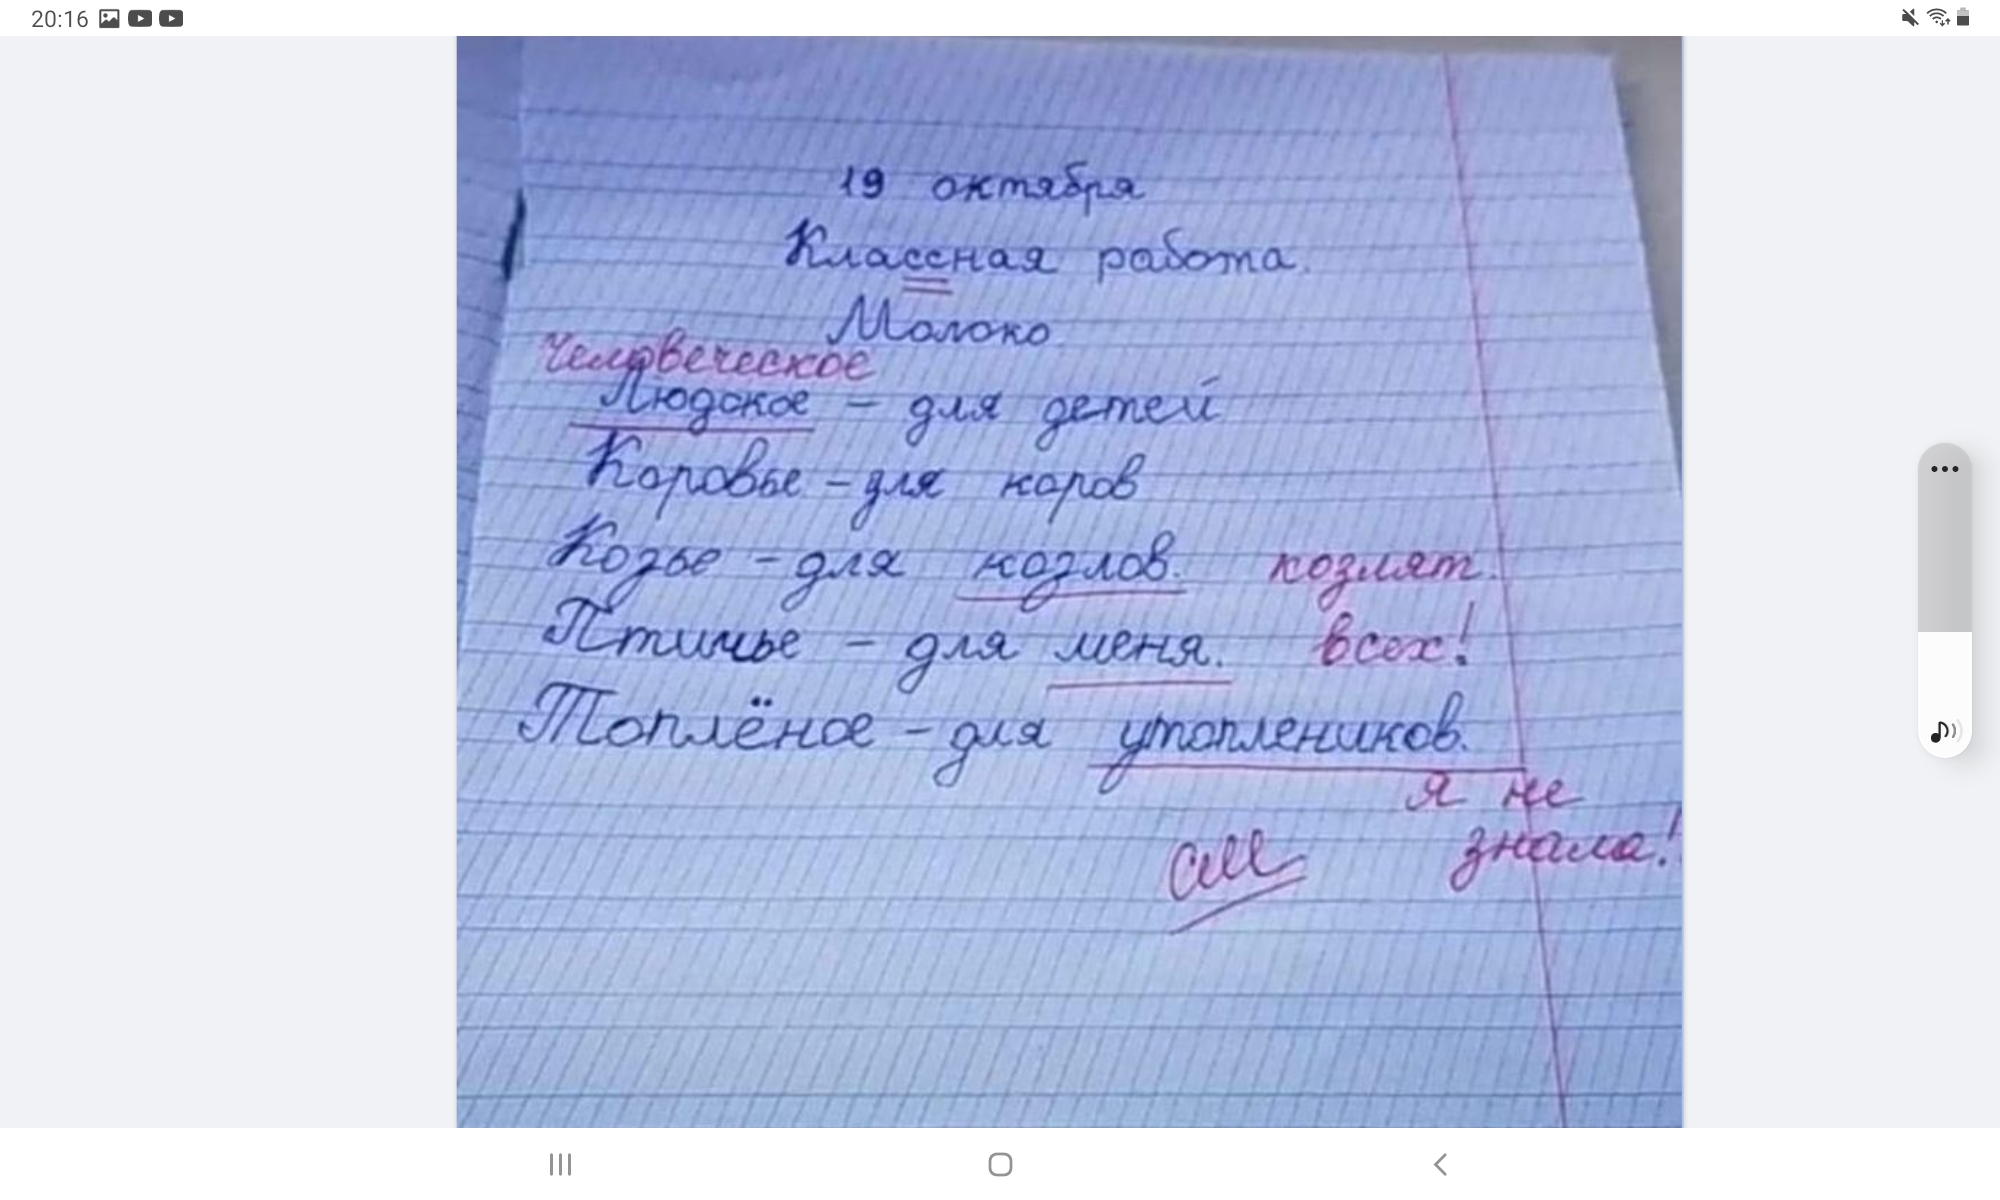 20:16
19 октября
Классная работа.
Молоко
Человеческое
Людское – для детей
Коровье – для коров
Козье – для козлов. козлят.
Птичье – для меня. всех!
Топлёное – для утоплеников.
я не
знала!
См